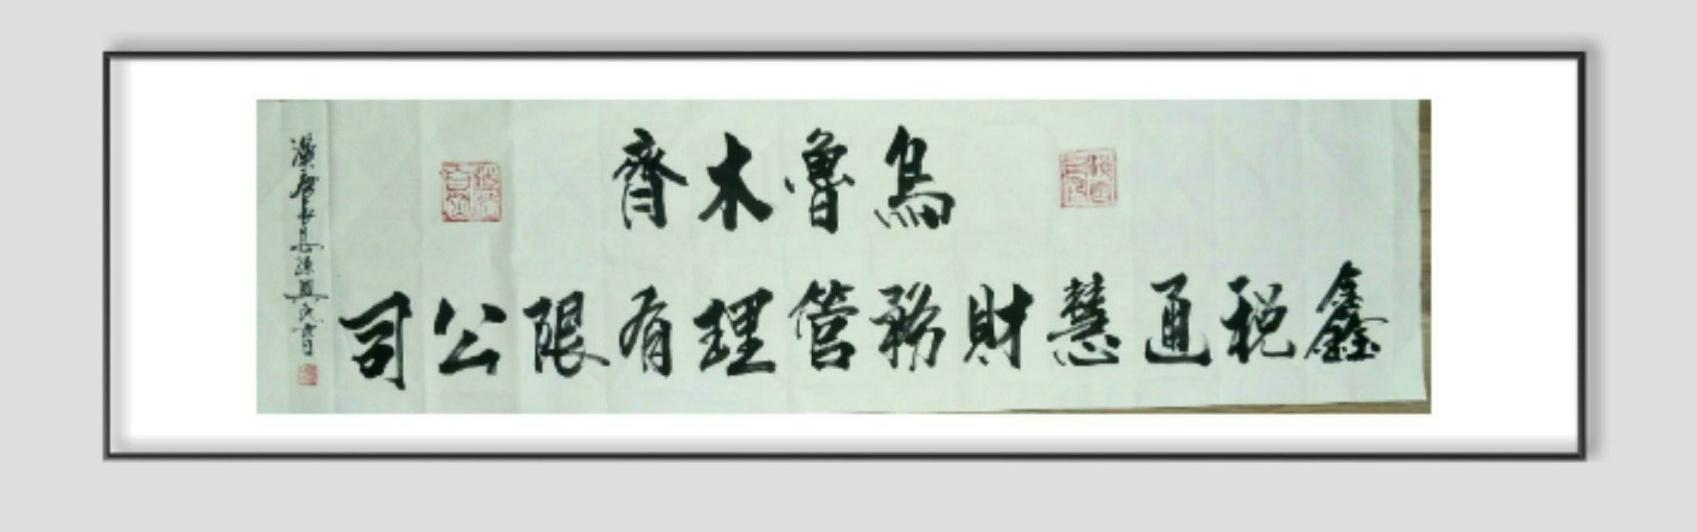 烏魯木齊
鑫税通慧財務管理有限公司